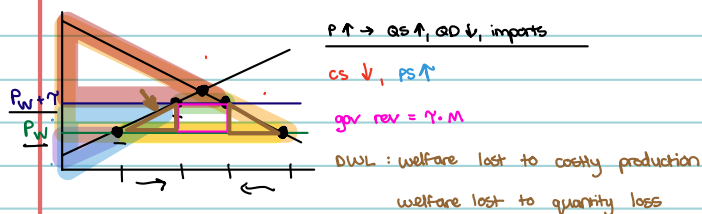 P↑ → QS↑, QD↓, imports
CS ↓, PS↑
Pw+τ
gov rev = τ·M
Pw
DWL : welfare lost to costly production
welfare lost to quantity loss